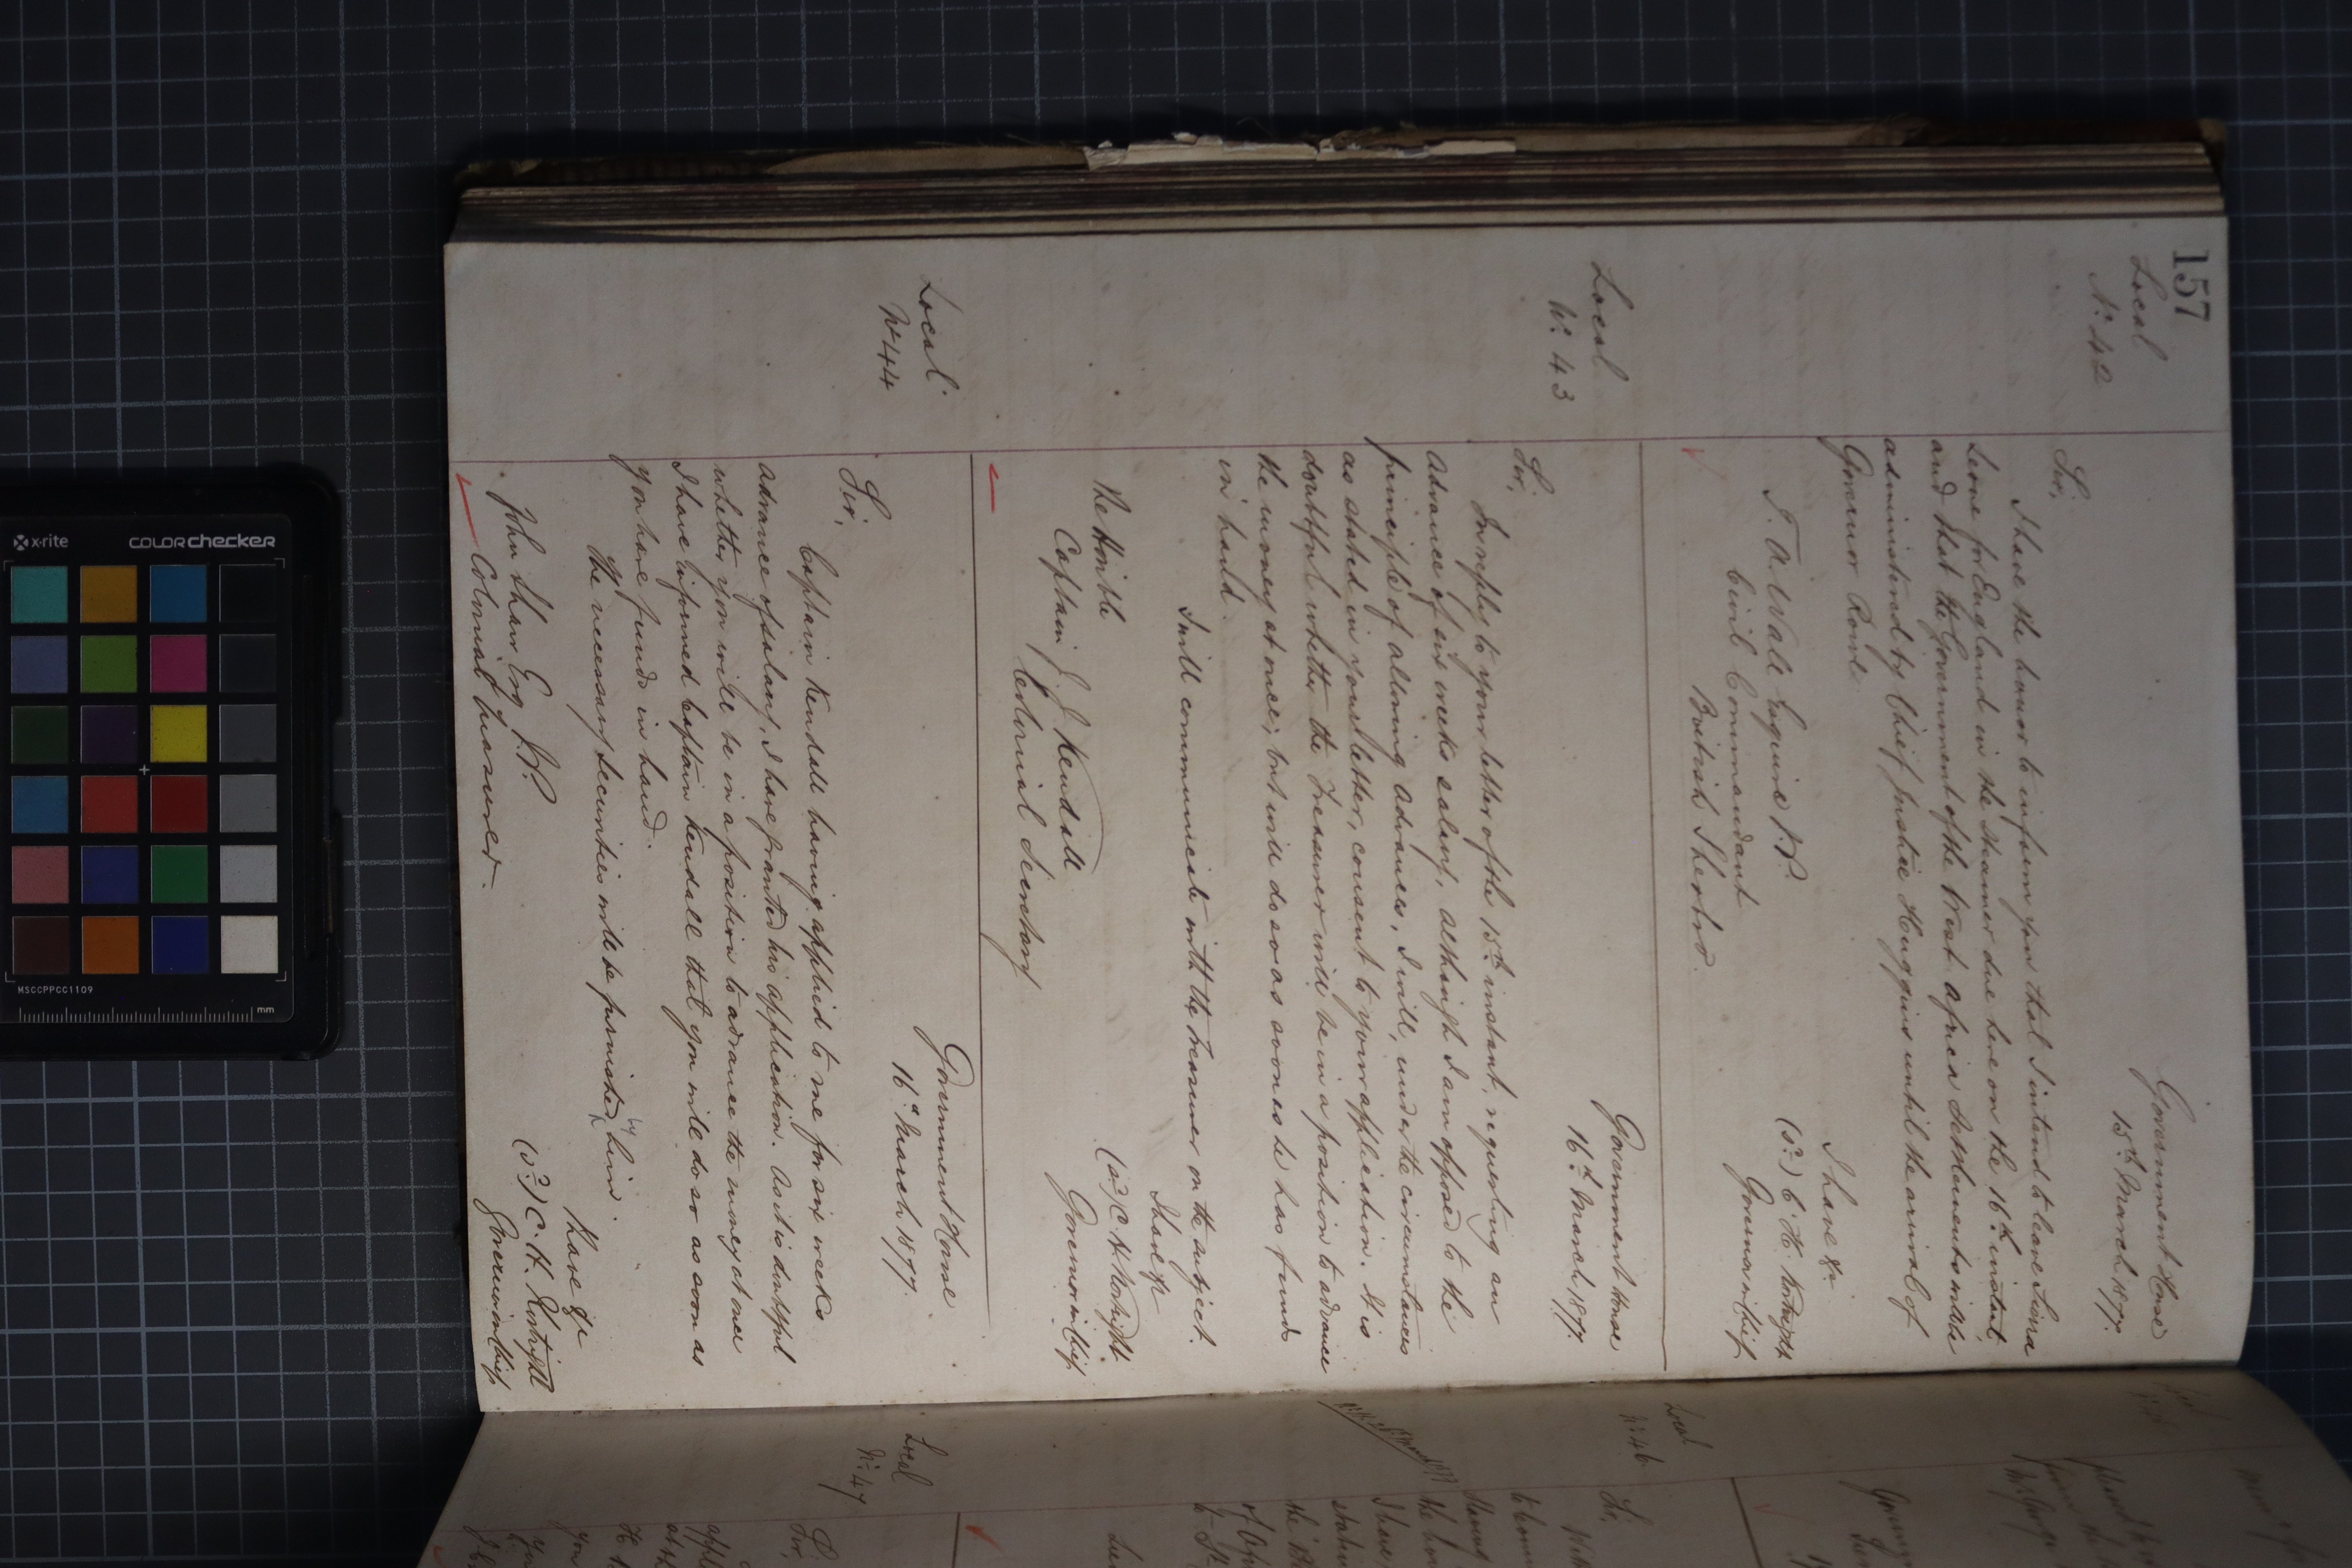 157
Local
No. 42
Government House
15th March 1877.
Sir,
I have the honor to inform you that I intend to leave Sierra
Leone for England in the steamer due here on the 16th instant,
and that the Government of the West Africa Settlements will be
administered by Chief Justice Huggins until the arrival of
Governor Rowe.
I have &c.
(sd.) C. H. Kortright
Governor in Chief
T. A. Wall Esquire J.P.
Civil Commandant
British Sherbro.
Local
No. 43
Government House
16th March 1877.
Sir,
In reply to your letter of the 15th instant, requesting an
advance of six weeks salary, although I am opposed to the
principle of allowing advances, I will, under the circumstances
as stated in your letter, consent to your application. It is
doubtful whether the Treasurer will be in a position to advance
the money at once; but will do so as soon as he has funds
in hand.
I will communicate with the Treasurer on the subject.
I have &c
(sd.) C. H. Kortright
Governor in Chief
The Honble
Captain J. J. Kendall
Colonial Secretary
Local.
No 44
Government House
16th March 1877.
Sir,
Captain Kendall having applied to me for six weeks
advance of salary, I have granted his application. As it is doubtful
whether you will be in a position to advance the money at once
I have informed Captain Kendall that you will do so as soon as
you have funds in hand.
The necessary securities will be furnished by him.
I have &c
(sd.) C. H. Kortright
Governor in Chief
John Shaw Esq J.P.
Colonial Treasurer.
Local
No. 46
Sir,
Local
No. 47
Sir,
x-rite
COLORchecker
MSCCPPCC1109
mm